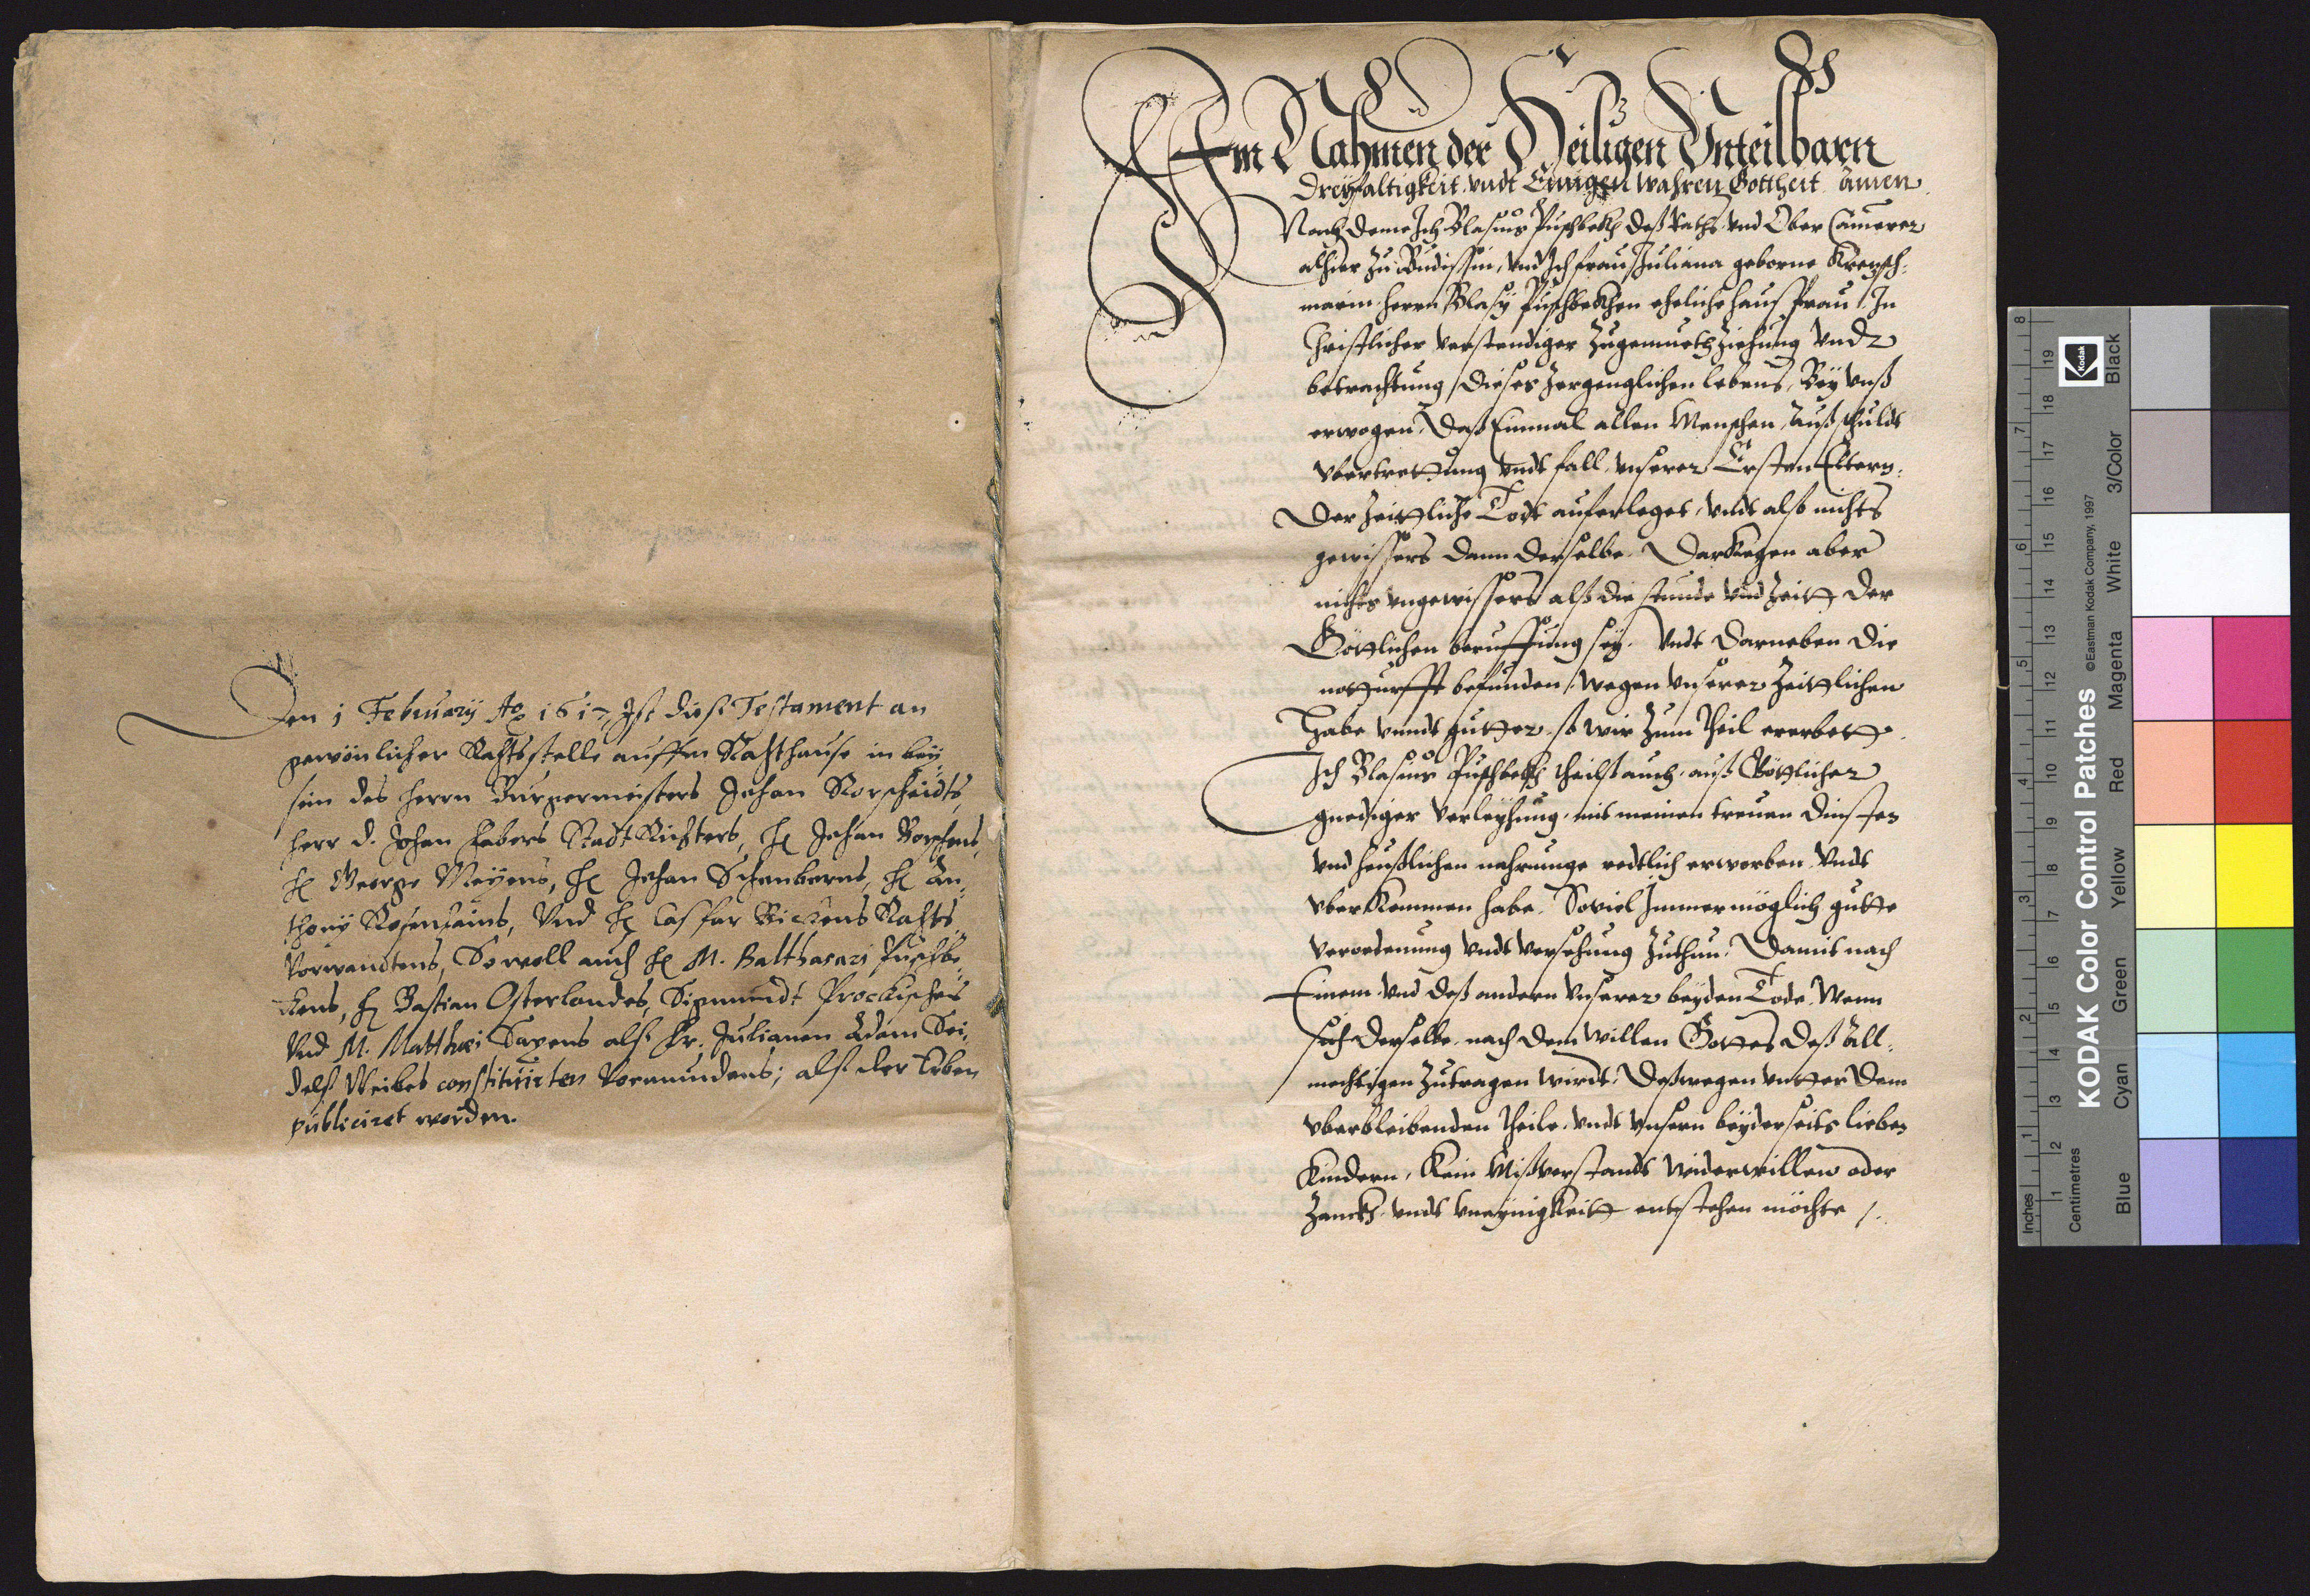 Den 1 February Ao 1617, Ist diese Testament an
gewönlicher Rahtsstelle auffm Rahthause in bey
sein des Herrn Bürgermeisters Johan
Herr D. Johan Fabers StadtRichters, H. Johan
H. George Meÿens, H. Johan Schönborns, H. An
thonÿ Rosenhains, Vnd H. Casspar Rats
Vorwandtens, Sowoll auch H. M. Balthasari Puschbe
ckens, H. Bastian Osterlandes, Sigmundt
Vnd M. Matthæi Saxens alß Fr. Julianen Adam Sei
dels Weibes constituirten Vormundens; alß der Erben
publiciret worden.
Im Nahmen der Heiligen Vnteilbarn
Dreyfaltigkeit vndt Einigen wahren Gottheit Amen
Nach deme Ich Blasius Puschbeck deß Raths vnd Ober Cämerer
alhier zu Budissin, vnd Ich frau Juliana geborne Kretzsch:
marin Herrn Blasy Puschbecken eheliche Hausfrau, In
Christlicher verstendiger Zugemueth Ziehung vnd
betrachtung dieses zergenglichen lebens, Beÿ vnß
erwogen, Daß Einmal allen Menschen, Auß schuldt
vbertrettung vndt fall vnserer Ersten Eltern,
Der Zeittliche Todt auferleget, vndt alß nichts
gewissers dann derselbe. Darkegen aber
nichts vngewissers alß die stunde vnd Zeitt der
Göttlichen beruffung seÿ. Vndt darneben die
notturfft befunden, wegen vnserer Zeittlichen
Habe vnndt gütter, so wir zum theil ererbett.
Ich Blasius Puschbeck theilß auch auß Göttlicher
gnediger verleÿhung, mit meinen treuen dinsten
vnd heußlichen nahrunge redtlich erworben vndt
vberkommen habe. Soviel Immer möglich gutte
verordenung vndt versehung zuthun, Damit nach
Einem vnd deß andern vnserer beÿden Tode, Wenn
sich derselbe nach dem willen Gottes deß All,
mechtigen Zutragen wirdt, Deßwegen vntter dem
vberbleibenden theile vndt vnsern beÿderseits lieben
Kindern, Kein Mißverstandt widerwillen oder
Zanck vndt vneÿnigkeitt entstehen möchte /.
Inches
Centimetres
KODAK Color Control Patches
© Eastman Kodak Company, 1997
Kodak
Blue Cyan Green Yellow Red Magenta White 3/Color Black
1 2 3 4 5 6 7 8
1 2 3 4 5 6 7 8 9 10 11 12 13 14 15 16 17 18 19